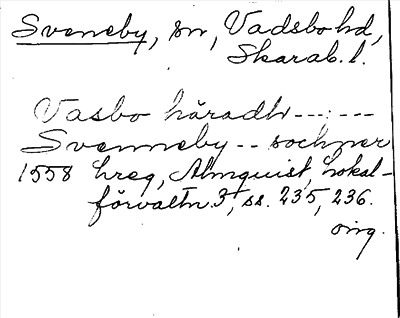 Sveneby, sn, Vadsbo hd,
Skarab. l.
Vasbo häradh --- : ---
Svenneby -- sochner
1558 hreg, Almquist, Lokal-
förvaltn. 3, ss. 235, 236.